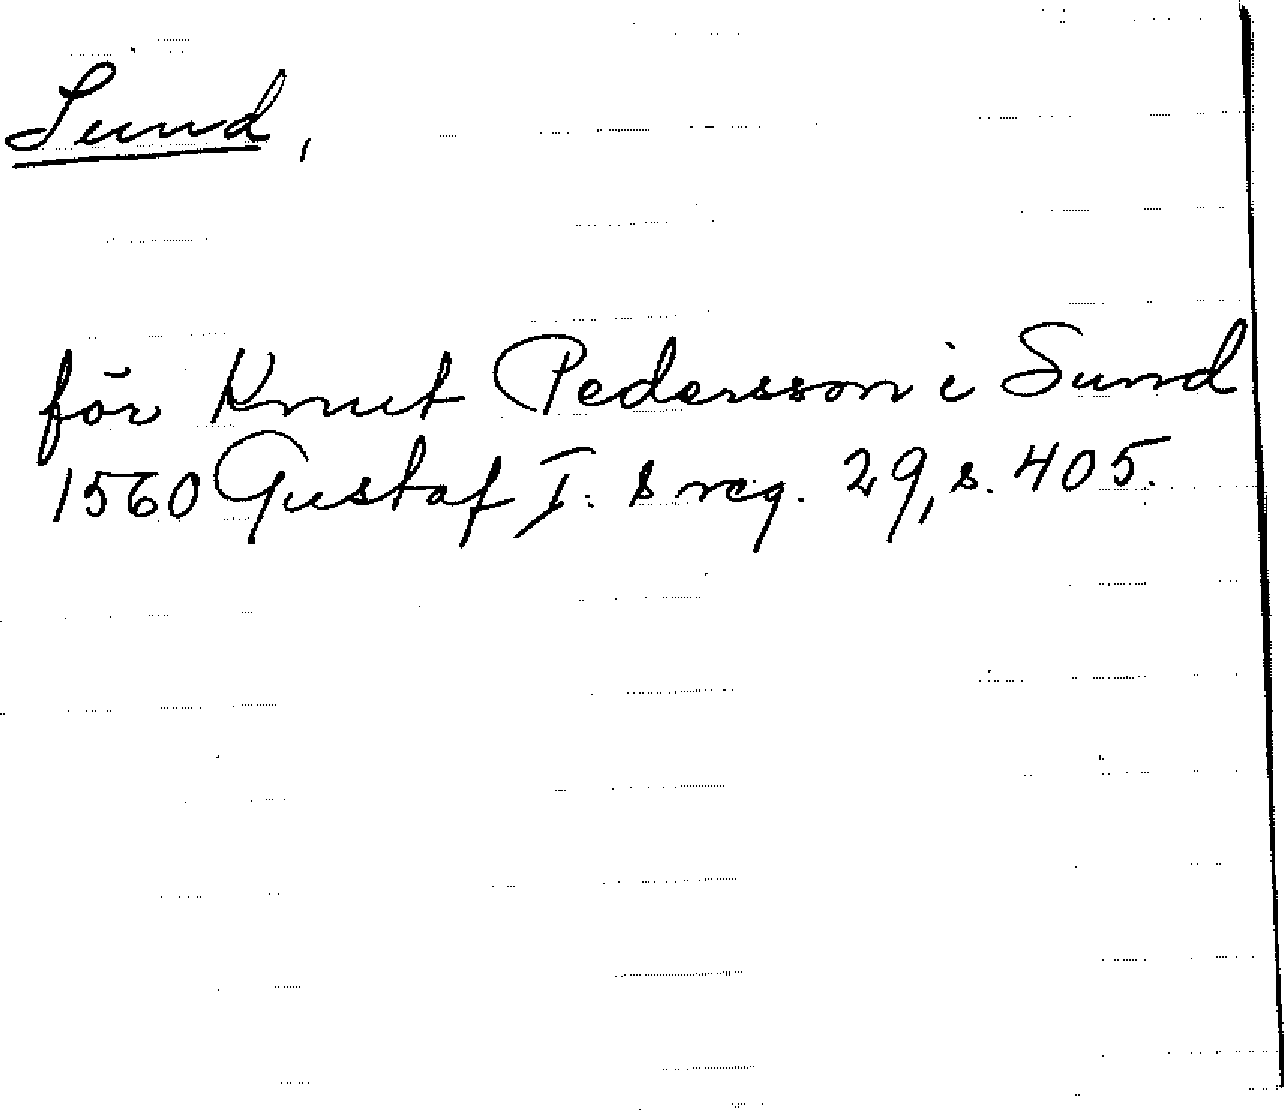 Sund,
för Knut Pedersson i Sund
1560 Gustaf I. s reg. 29, s. 405.